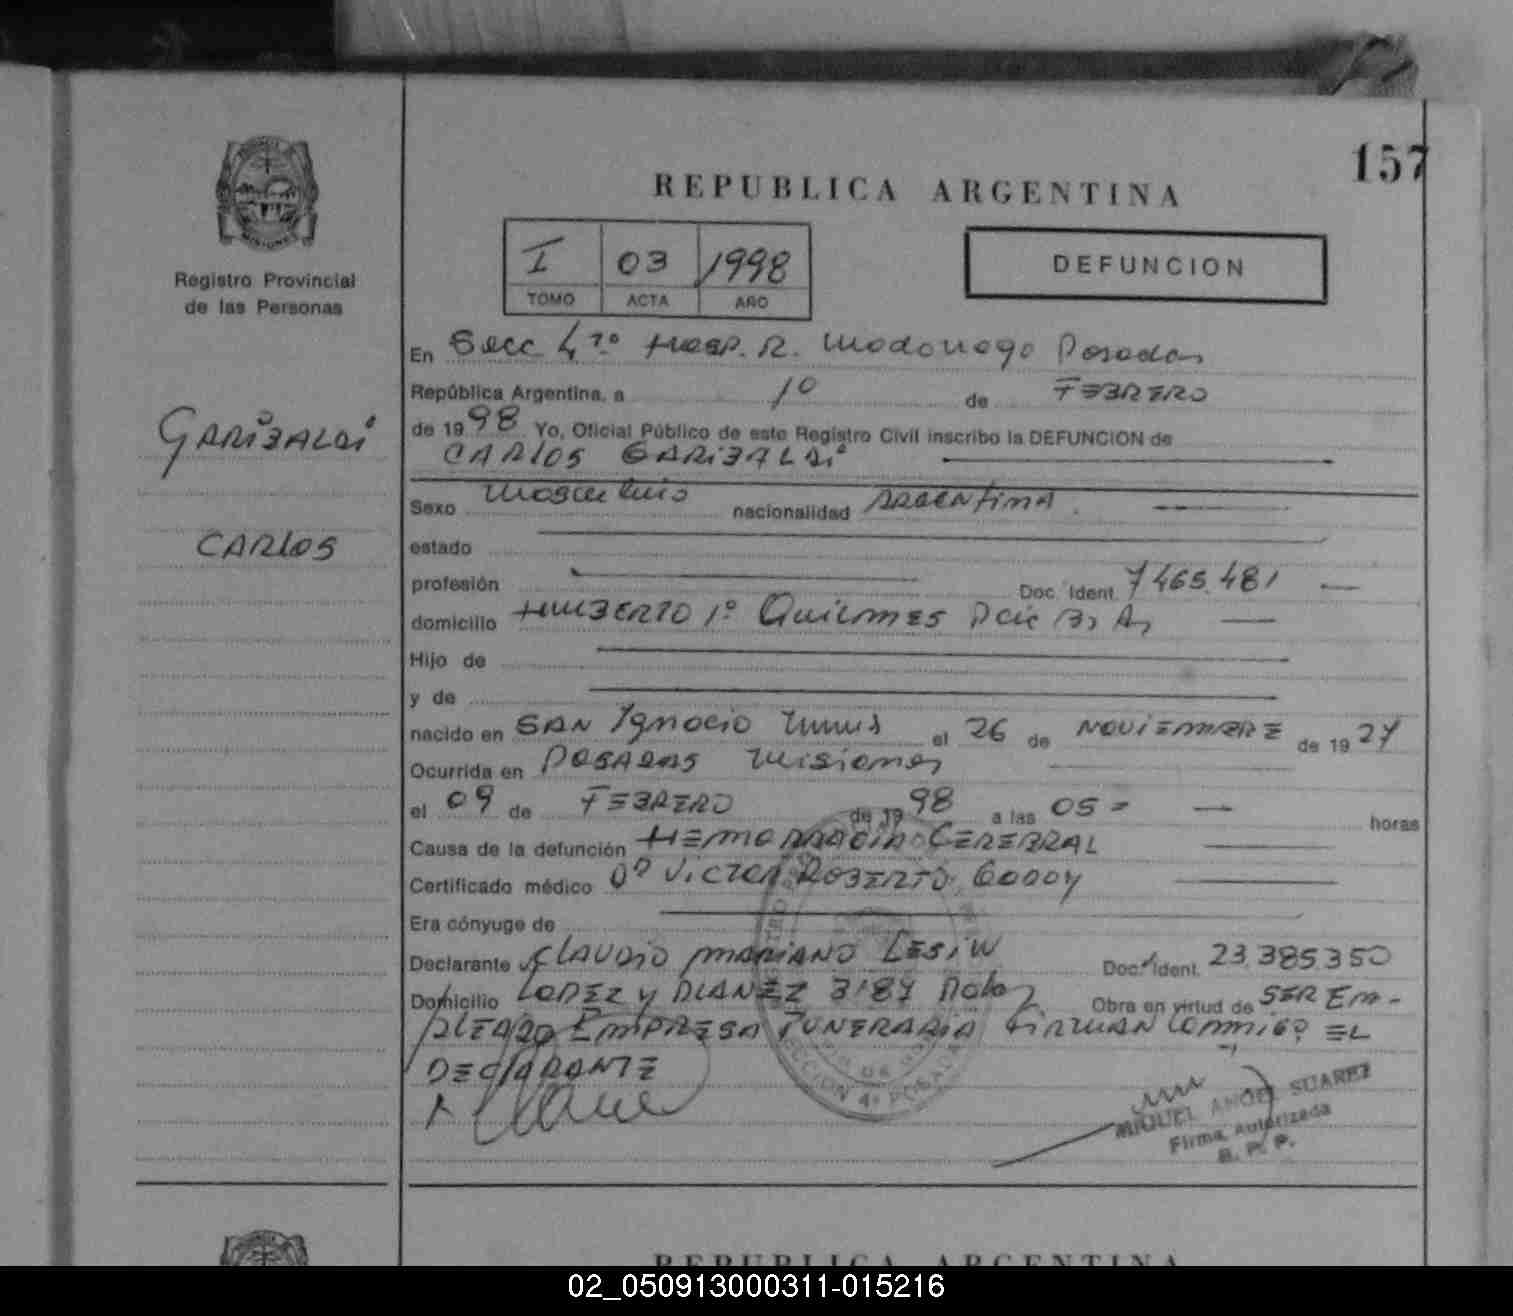 157
REPUBLICA ARGENTINA
MISIONES
Registro Provincial
de las Personas
I 03 1998
TOMO ACTA AÑO
DEFUNCION
GARiBALDi
CARLOS
En Secc 4ta Hosp. R. Madonago Posadas
República Argentina, a 10 de FEBRERO
de 19 98 Yo, Oficial Público de este Registro Civil inscribo la DEFUNCION de
CARLOS GARiBALDi
Sexo Masculino nacionalidad ARGENTINA.
estado
profesión Doc. Ident. 7465.481
domicilio HUMBERTO 1º QUILMES Pcia Bs As
Hijo de
y de
nacido en SAN Ignacio Mnes el 26 de NOVIEMBRE de 19 27
Ocurrida en POSADAS Misiones
el 09 de FEBRERO de 19 98 a las 05 = horas
Causa de la defunción HEMORRAGIA CEREBRAL
Certificado médico Dr VICTOR ROBERTO GODOY
Era cónyuge de
Declarante CLAUDIO MARIANO LESIW Doc. Ident. 23.385.350
Domicilio LOPEZ y PLANEZ 3187 Pdas Obra en virtud de SER EM-
PLEADO EMPRESA FUNERARIA FIRMAN CONMIGO EL
DECLARANTE
SECCION 4ª POSADAS
MIGUEL ANGEL SUAREZ
Firma Autorizada
R. P. P.
REPUBLICA ARGENTINA
02_050913000311-015216